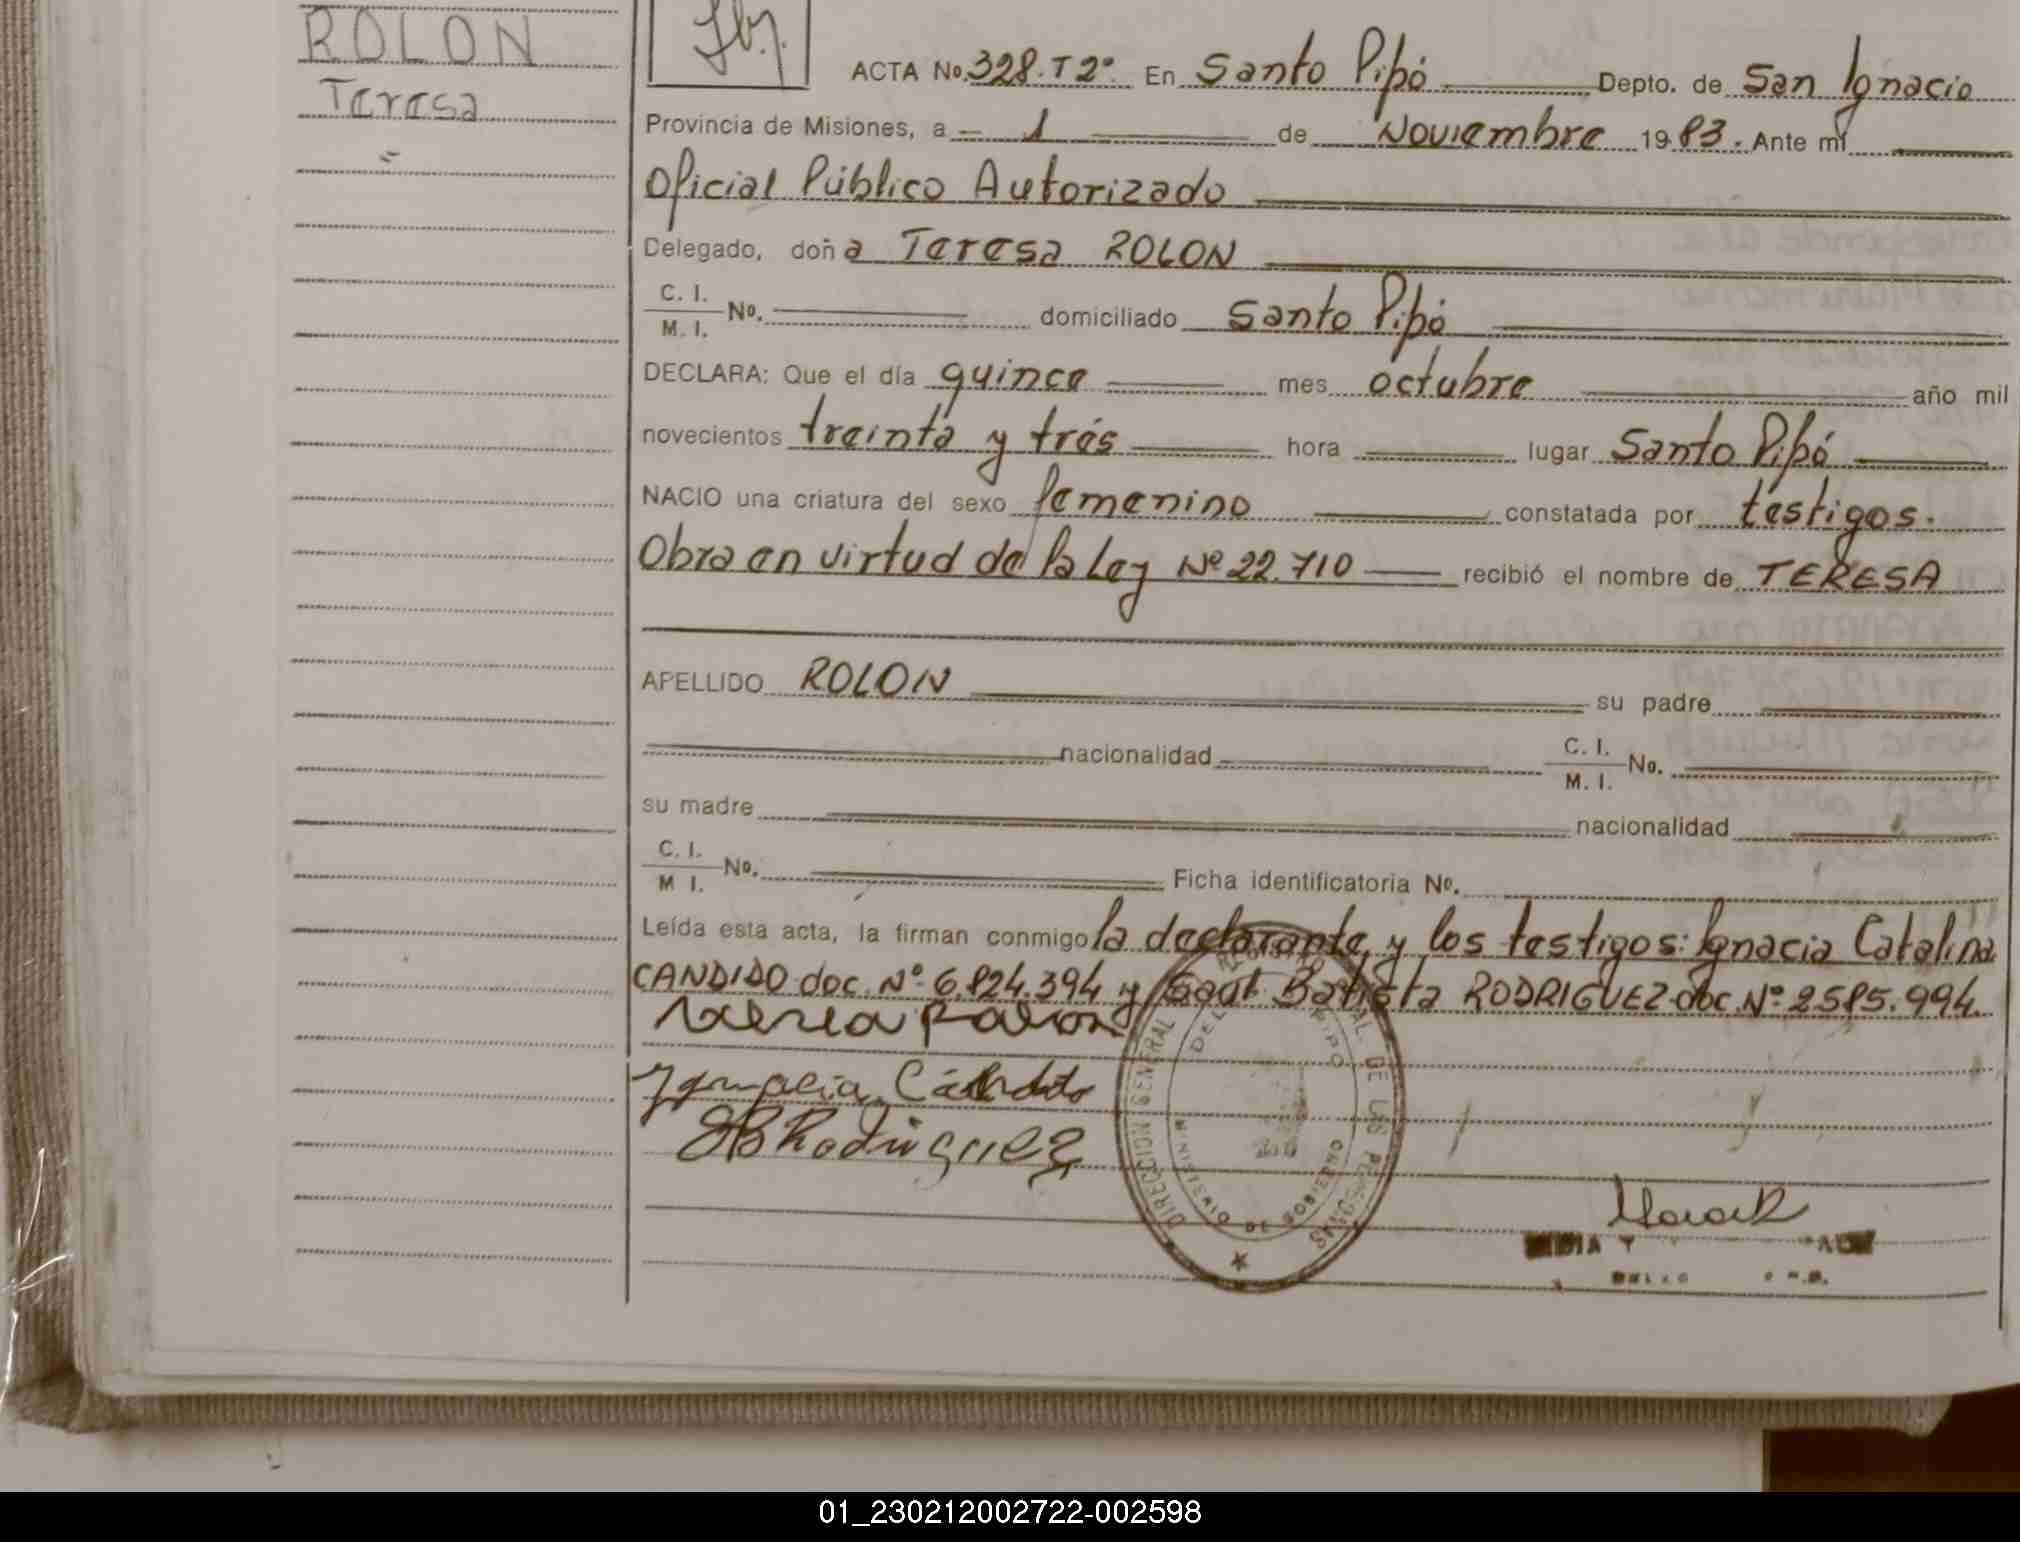 ROLON
Teresa
ACTA No. 328. T 2º. En Santo Pipó Depto. de San Ignacio
Provincia de Misiones, a 1 de Noviembre 1983. Ante mí
Oficial Público Autorizado
Delegado, doña Teresa ROLON
C. I.
M. I. No. domiciliado Santo Pipó
DECLARA: Que el día quince mes octubre año mil
novecientos treinta y trés hora lugar Santo Pipó
NACIO una criatura del sexo femenino constatada por testigos.
Obra en virtud de la Ley Nº 22.710 recibió el nombre de TERESA
APELLIDO ROLON su padre
nacionalidad C. I.
M. I. No.
su madre nacionalidad
C. I.
M I. No. Ficha identificatoria No.
Leída esta acta, la firman conmigo la declarante, y los testigos: Ignacia Catalina
CANDIDO doc. Nº 6.824.394 y Saul Batista RODRIGUEZ doc. Nº 2585.994.
Ignacia Candido
SB Rodriguez
DIRECCION GENERAL DE LAS PERSONAS
MINISTERIO DE GOBIERNO
01_230212002722-002598